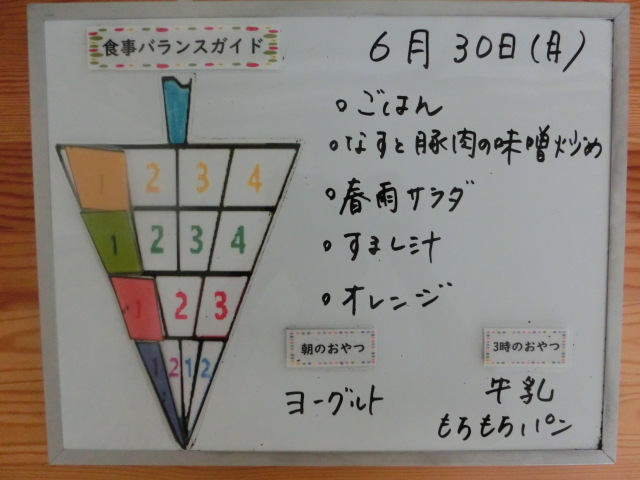 食事バランスガイド
6月30日(月)
○ごはん
○なすと豚肉の味噌炒め
○春雨サラダ
○すまし汁
○オレンジ
1 2 3 4
1 2 3 4
1 2 3
1 2 1 2
朝のおやつ
ヨーグルト
3時のおやつ
牛乳
もちもちパン